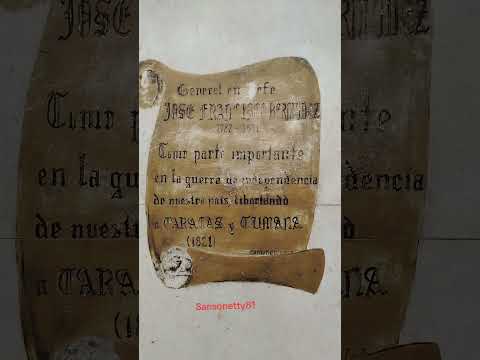 General en Jefe
JOSE FRANCISCO BERMUDEZ
1782 - 1831
Tomo parte importante
en la guerra de independencia
de nuestro pais, libertando
a CARACAS y CUMANA
(1821)
Sansonetty81